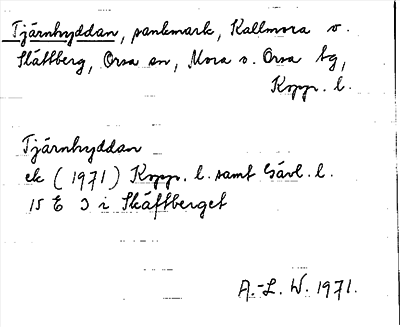 Tjärnhyddan, sankmark, Kallmora o.
Skåttberg, Orsa sn, Mora o. Orsa tg,
Kopp. l.
Tjärnhyddan
ek (1971) Kopp. l. samt Gävl. l.
15 E 3 i Skåftberget
A.-L. W. 1971.